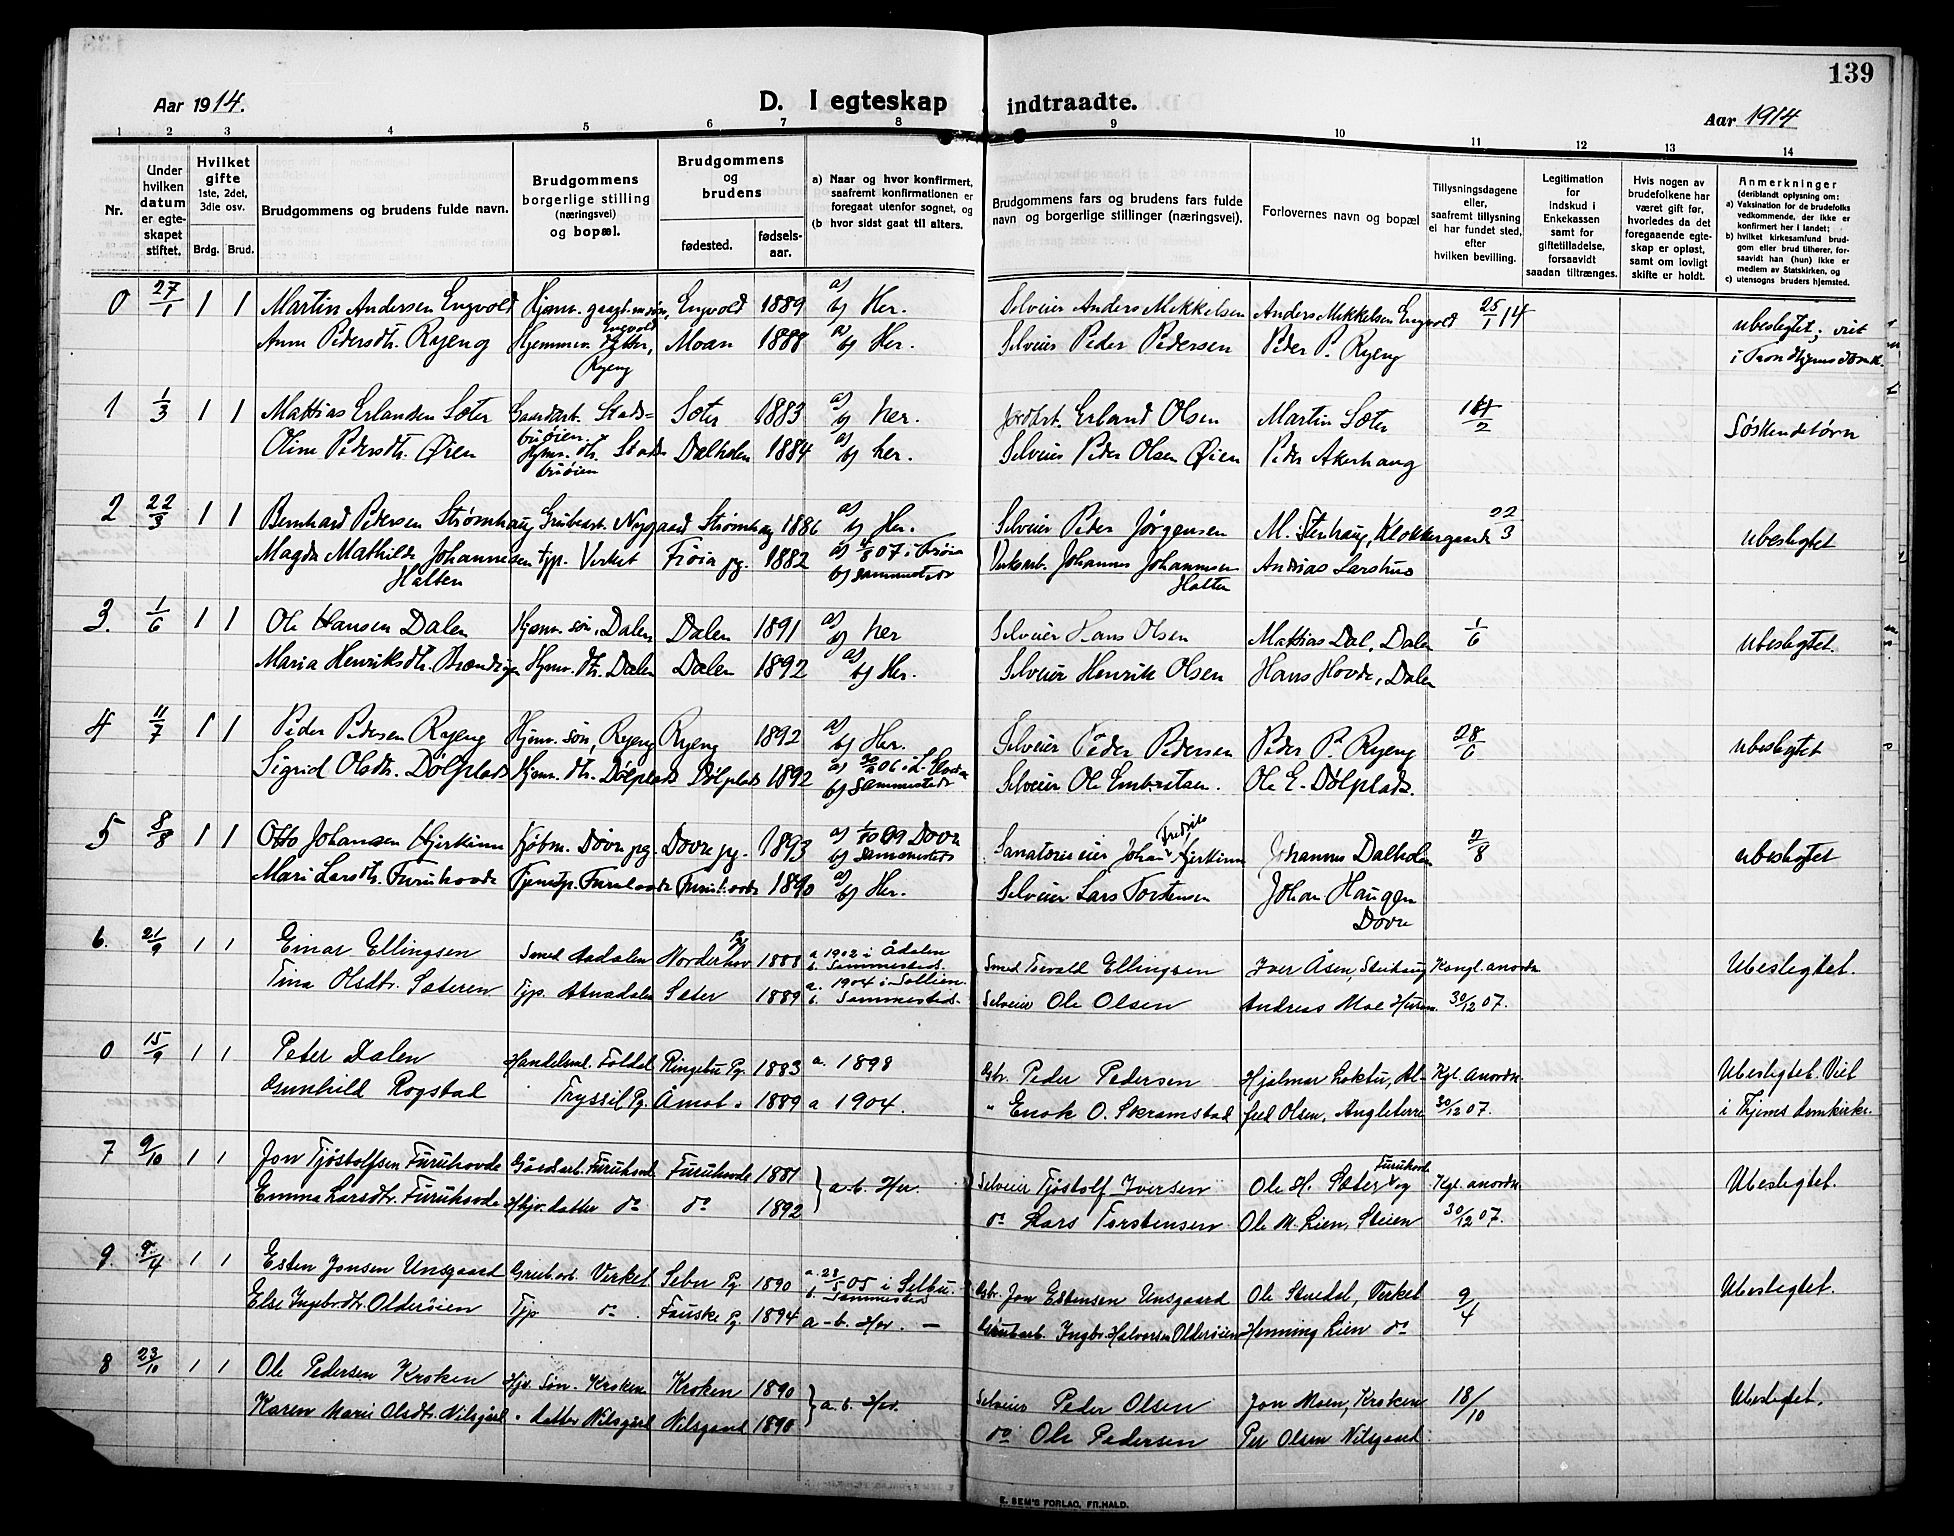 139
Aar 1914.
D. I egteskap indtraadte.
Aar 1914
1 2 3 4 5 6 7 8 9 10 11 12 13 14
Nr.
Under hvilken datum er egteskapet stiftet.
Hvilket gifte 1ste, 2det, 3die osv.
Brdg. Brud.
Brudgommens og brudens fulde navn.
Brudgommens borgerlige stilling (næringsvei) og bopæl.
Brudgommens og brudens
fødested. fødselsaar.
a) Naar og hvor konfirmert, saafremt konfirmationen er foregaat utenfor sognet, og
(b hvor sidst gaat til alters.
Brudgommens fars og brudens fars fulde navn og borgerlige stillinger (næringsvei).
Forlovernes navn og bopæl
Tillysningsdagene eller, saafremt tillysning ei har fundet sted, efter hvilken bevilling.
Legitimation for indskud i Enkekassen samt for giftetilladelse, forsaavidt saadan tiltrænges.
Hvis nogen av brudefolkene har været gift før, hvorledes da det foregaaende egteskap er opløst, samt om lovligt skifte er holdt.
Anmerkninger (deriblandt oplysning om: a) Vaksination for de brudefolks vedkommende, der ikke er konfirmert her i landet; b) hvilket kirkesamfund brudgom eller brud tilhører, forsaavidt han (hun) ikke er medlem av Statskirken, og c) utensogns bruders hjemsted.
0 27/1 1 1 Martin Andersen Engvold Hjemv. Engvold Engvold 1889 a) b) Her. Selveier Anders Mikkelsen Anders Mikkelsen Engvold 25/1 14 ubeslegtet; viet
Anne Pedersdtr. Ryeng Hjemmev. datter, Ryeng Moan 1888 a) b) Her. Selveier Peder Pedersen Peder P. Ryeng i Trondhjems domk.
1 1/3 1 1 Mattias Erlandsen Sæter Gaardarb. Stadsbuøien Sæter 1883 a) b) her. Jordbr. Erland Olsen Martin Sæter Søskendebørn
Oline Pedersdtr. Øien Hjmv. dtr. Stadsbuøien Dalholen 1884 a) b) her. Selveier Peder Olsen Øien Peder Akerhaug
2 22/3 1 1 Bernhard Pedersen Strømhaug Grubearb. Nygaard Strømhaug 1886 a) b) Her. Selveier Peder Jørgensen M. Stenhaug, Klokkergaard 22/3 ubeslegtet
Magda Mathilde Johannesen Halten tjp. Verket Frøia pg. 1882 a) 07 i Frøia b) sammesteds Verksarb. Johannes Johannesen Halten Andreas Larshus
3. 1/6 1 1 Ole Hansen Dalen Hjemv. søn, Dalen Dalen 1891 a) b) her Selveier Hans Olsen Mattias Dal, Dalen 1/6 ubeslegtet.
Maria Henriksdtr. Brændingen Hjmv. dtr. Dalen Dalen 1892 a) b) Her. Selveier Henrik Olsen Hans Hovde, Dalen
4 11/7 1 1 Peder Pedersen Ryeng Hjemv. søn, Ryeng Ryeng 1892 a) b) Her. Selveier Peder Pedersen Peder P. Ryeng 28/6 ubeslegtet
Sigrid Olsdtr. Dølplads Hjmv. dtr. Dølplads Dølplads 1892 b) Sammesteds Selveier Ole Embretsen. Ole E. Dølplads.
5 8/8 1 1 Otto Johansen Hjerkinn Kjøbm. Dovre pg. Dovre pg. 1893 a) 1/10 09 Dovre b) Sammesteds Sanatorieeier Johan Fredrik Hjerkinn Johannes Dalholen 2/8 ubeslegtet
Mari Larsdtr. Furuhovde Tjenstp. Furuhovde Furuhovde 1890 a) b) Her. Selveier Lars Torstensen Johan Haugen Dovre
6. 21/9 1 1 Einar Ellingsen Smed Aadalen Norderhov Pg. 1888 a 1902 i Ådalen b. Sammesteds. Smed Torvald Ellingsen Iver Åsen, Steihaug Kongl. anordn. Ubeslegtet.
Tina Olsdtr. Sæteren Tjp. Atnadalen Sæter 1889 a. 1904 i Sollien b. Sammesteds. Selveier Ole Olsen Andreas Moe 30/12 07.
0 15/9 1 1 Peter Dalen Handelsml. Foldal Ringebu Pg. 1883 a. 1898 Gbr. Peder Pedersen Hjalmar Løktu, Al- Kgl. anordn. Ubeslegtet. Viet
Gunhild Rogstad Tryssil Pg. Åmot " 1889 a 1904. " Enok O. Skramstad fred Olsen, Angleterre 30/12 07. i Thjems domkirke.
7 9/10 1 1 Jon Tjøstolfsen Furuhovde Gårdsarb. Furuhovde Furuhovde 1881 a. b. Her. Selveier Tjøstolf Iversen Ole H. Sæter Furuhovde og Kgl. anordn. Ubeslegtet.
Emma Larsdtr. Furuhovde Hjv. datter do do 1892 do Lars Torstensen Ole M. Lien, Steien 30/12 07.
9. 9/4 1 1 Esten Jonsen Unsgaard Grubearb. Verket Selbu Pg 1890 a. 28/5 05 i Selbu. b. Sammesteds Gbr. Jon Estensen Unsgaard Ole Stuedal, Verket 9/4 Ubeslegtet.
Else Ingebr.dtr. Olderøien Tjp do. Fauske Pg 1894 a - b. Her. — Grubarb. Ingbr. Halvorsen Olderøien Henning Lien do
8 23/10 1 1 Ole Pedersen Kroken Hjv. Søn. Kroken Kroken 1890 a. b. Her. Selveier Peder Olsen Jon Moen, Kroken 18/10 Ubeslegtet.
Karen Marie Olsdtr. Nilsgård " datter Nilsgård Nilsgaard 1890 do Ole Pedersen Per Olsen Nilsgaard
E. SEM'S FORLAG, FR.HALD.